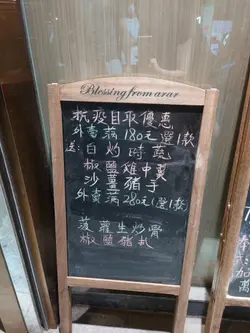 Blessing from arar
抗疫自取優惠
外賣滿180元選1款
送:白灼時蔬
椒鹽雞中翼
沙薑豬手
外賣滿280元(選1款)
菠蘿生炒骨
椒鹽豬扒